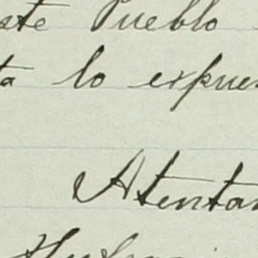 ste Pueblo
ta lo expues
Atentam